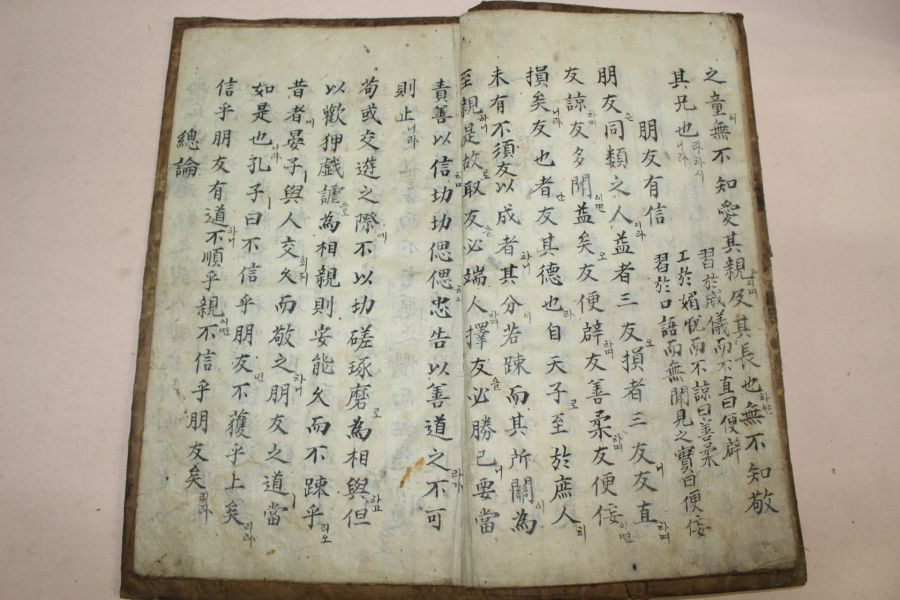 之童이無不知愛其親하며及其長也하얀無不知敬
其兄也라하시니라
習於威儀而不直曰便辟
工於媚悅而不諒曰善柔
習於口語而無聞見之實曰便佞
朋友有信
朋友은同類之人이라益者三友오損者三友니友直하며
友諒하며友多聞이면益矣오友便辟하며友善柔하며友便佞이면
損矣니라友也者난友其德也라自天子로至於庶人히
未有不須友以成者하니其分이若踈而其所關이為
至親하니是故로取友을必端人하며擇友을必勝己니要當
責善以信하며切切偲偲하야忠告以善道之라가不可
則止니라
苟或交遊之際에不以切磋琢磨로為相與하고但
以歡狎戲謔으로為相親則安能久而不踈乎리오
昔者에晏子ㅣ與人交久而敬之하니朋友之道當
如是也니라孔子ㅣ曰不信乎朋友면不獲乎上矣리라
信乎朋友有道하니不順乎親이면不信乎朋友矣리라
總論